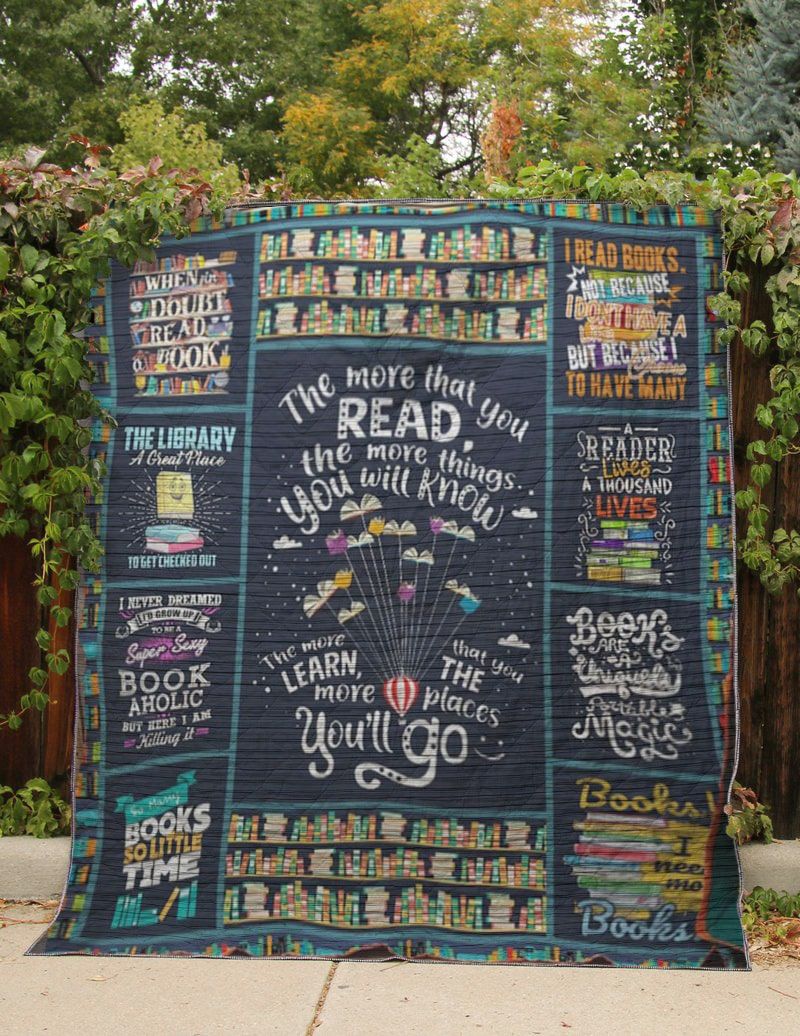 WHEN IN
DOUBT
READ A
BOOK
THE LIBRARY
A Great Place
TO GET CHECKED OUT
I NEVER DREAMED
I'D GROW UP
TO BE A
Super Sexy
BOOK
AHOLIC
BUT HERE I AM
Killing it
So Many
BOOKS
SO LITTLE
TIME
The more that you
READ,
the more things
You will Know
The more that you
LEARN, THE
more places
You'll go
I READ BOOKS.
NOT BECAUSE
I DON'T HAVE A
BUT BECAUSE I
Choose
TO HAVE MANY
A
READER
Lives
A THOUSAND
LIVES
BOOKS
ARE A
Uniquely
Portable
Magic
Books!
I
nee
mo
Books